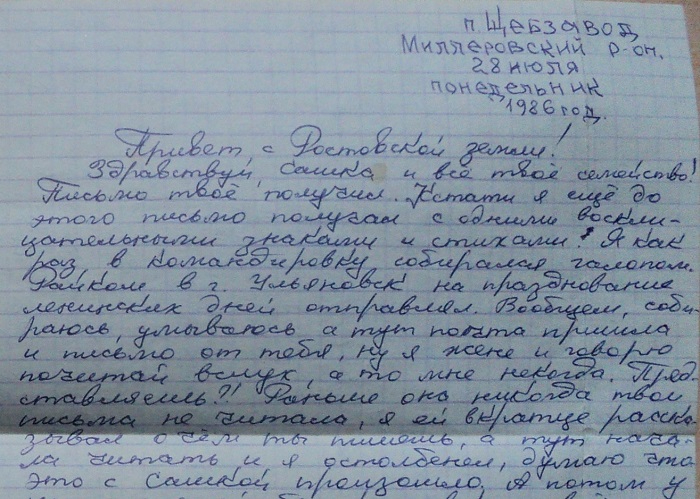 п. Щебзавод
Миллеровский р-он.
28 июля
понедельник
1986 год.
Привет с Ростовской земли!
Здравствуй, Сашка и всё твоё семейство!
Письмо твоё получил. Кстати я ещё до
этого письмо получал с одними воскли-
цательными знаками и стихами! Я как
раз в командировку собирался галопом.
Райком в г. Ульяновск на празднование
ленинских дней отправлял. Вообщем, соби-
раюсь, умываюсь а тут почта пришла
и письмо от тебя, ну я жене и говорю
почитай вслух, а то мне некогда. Пред-
ставляешь?! Раньше она никогда твои
письма не читала, я ей вкратце расска-
зывал о чём ты пишешь, а тут нача-
ла читать и я остолбенел, думаю что
это с Сашкой произошло. А потом у